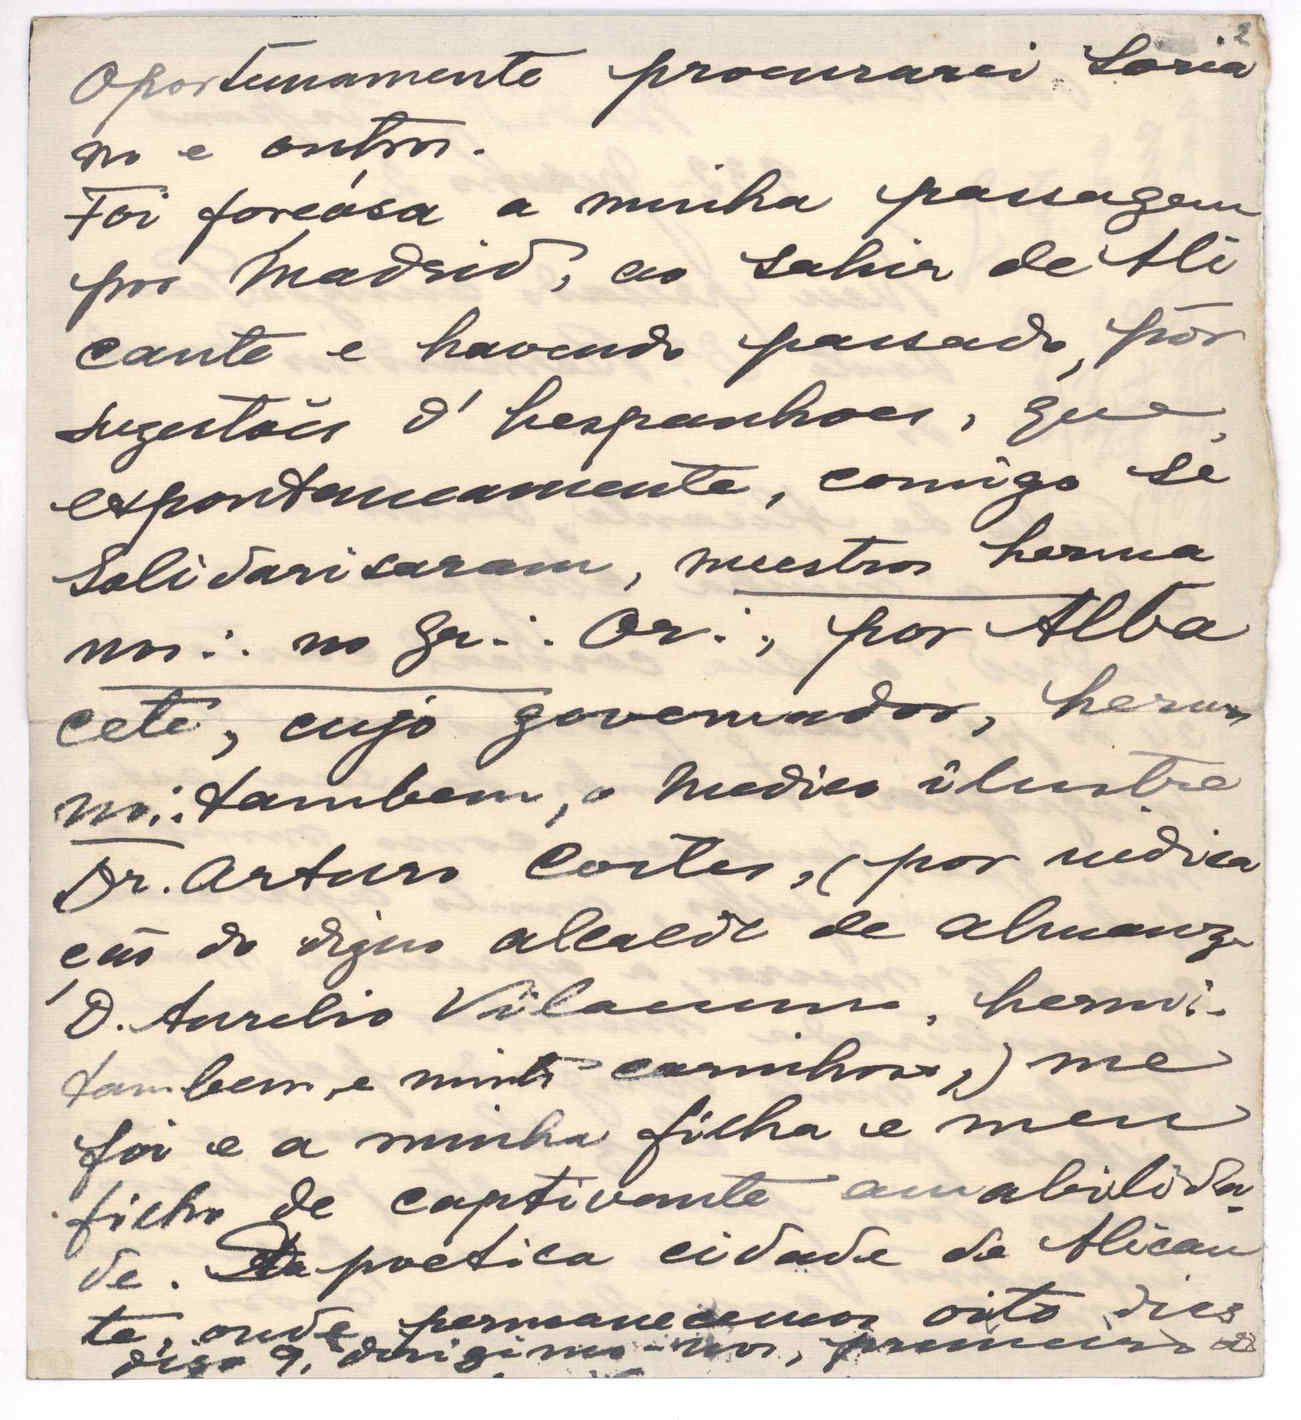 2
Oportunamente procurarei Soria
no e outros.
Foi forçósa a minha passagem
por Madrid, ao sahir de Ali
cante e havendo passado, por
sugestões d'hespanhoes, que,
expontaneamente, comigo se
solidarisaram, nuestros herma
nos∴ no Gr∴ Or∴, por Alba
cete, cujo governador, herma
no∴ tambem, o medico ilustre
Dr. Arturo Cortes, (por indica
ção do digno alcalde de Almanza
D. Aurelio Vilaescusa, herm∴
tambem, e carinhoso,) me
foi e a minha filha e meu
filho de captivante amabilida-
de. Da poetica cidade de Alican
te, onde permanecemos oito dias
digo 9, dirigimo-nos, primeiro